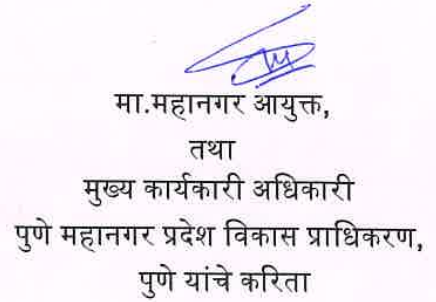 मा.महानगर आयुक्त,
तथा
मुख्य कार्यकारी अधिकारी
पुणे महानगर प्रदेश विकास प्राधिकरण,
पुणे यांचे करिता